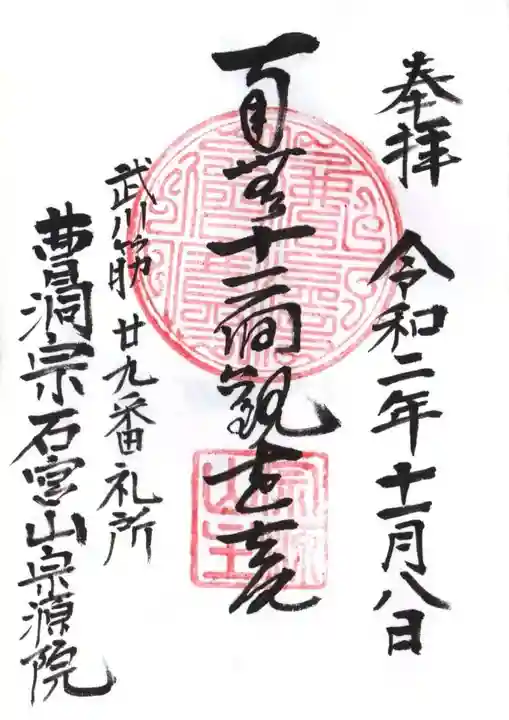 奉拝
令和二年十一月八日
南無十一面觀世音
武川筋 廿九番礼所
曹洞宗石宮山宗源院